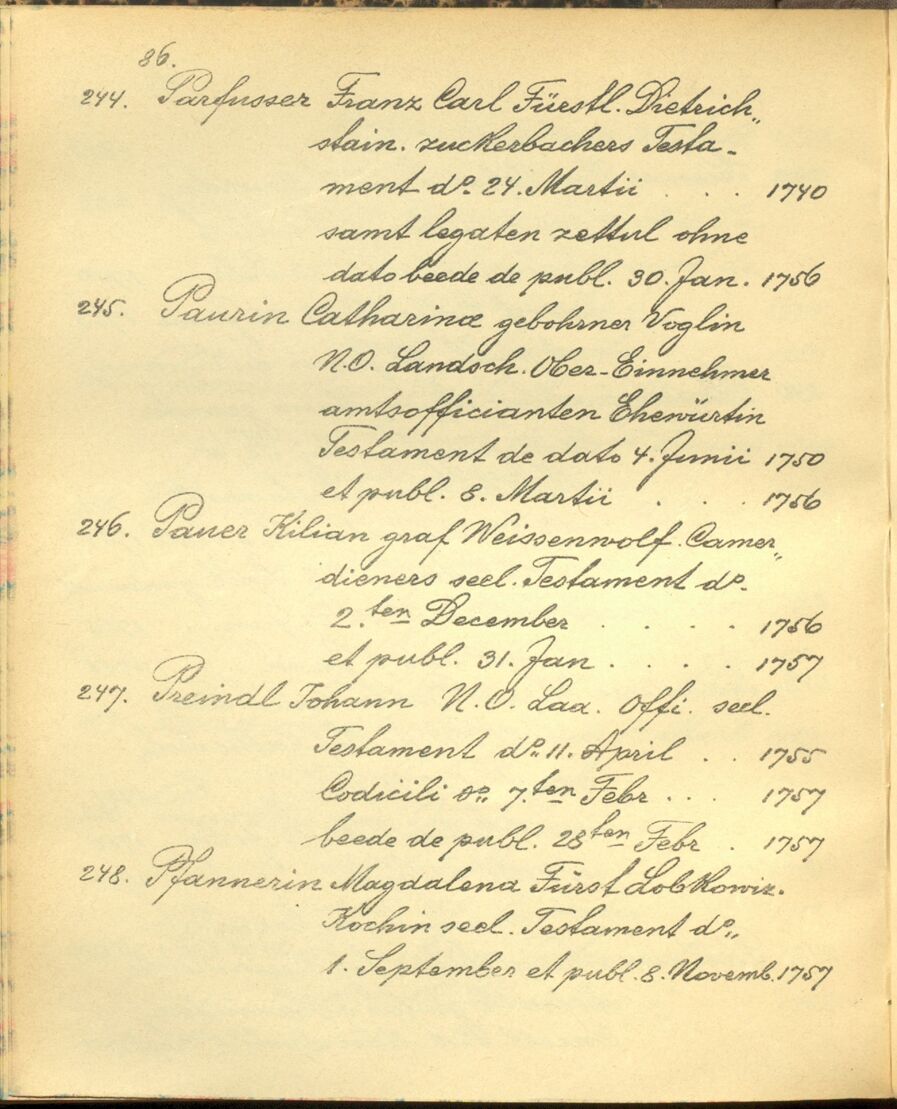 86.
244. Parfusser Franz Carl Fürstl. Dietrich„
stain. zuckerbachers Testa-
ment do. 24. Martii . . . 1740
samt legaten zettul ohne
dato beede de publ. 30. Jan. 1756
245. Paurin Catharinæ gebohrner Voglin
N.O. Landsch. Ober-Einnehmer
amtsofficianten Ehewürtin
Testament de dato 4. Junii 1750
et publ. 8. Martii . . . 1756
246. Pauer Kilian graf Weissenwolf. Camer„
dieners seel. Testament do.
2.ten December . . . . 1756
et publ. 31. Jan . . . . 1757
247. Preindl Johann N.O. Laa. Offi. seel.
Testament do„ 11. April . . 1755
Codicili do„ 7.ten Febr . . . 1757
beede de publ. 28ten Febr . 1757
248. Pfannerin Magdalena Fürst Lobkowiz.
Kochin seel. Testament do„
1. September et publ. 8. Novemb. 1757